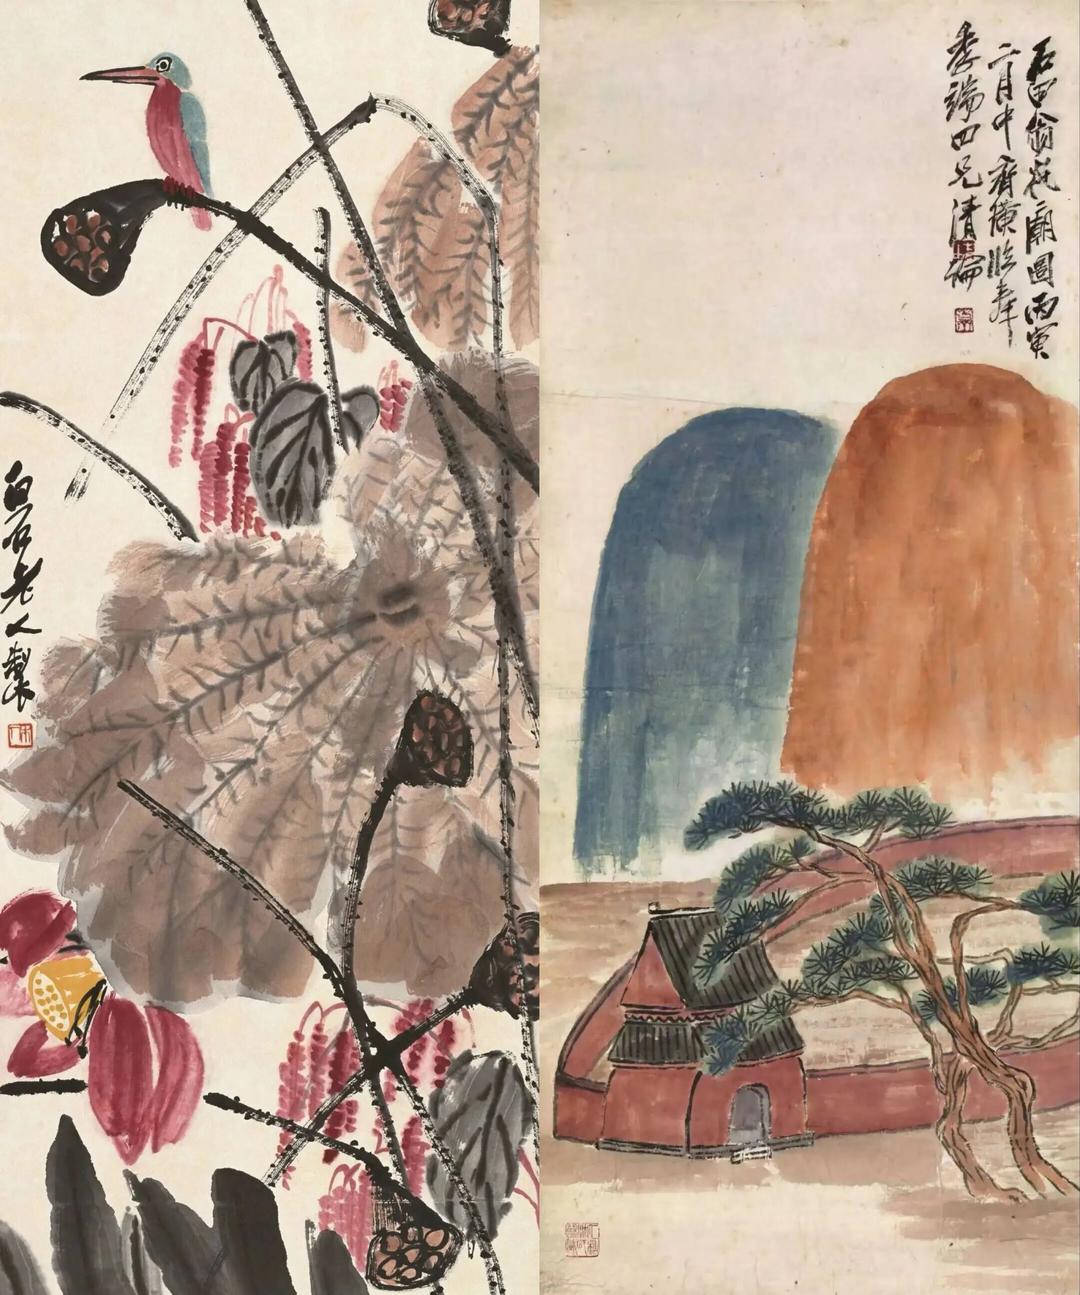 白石老人製
石田翁花廟圖丙寅
二月中齊璜臨奉
季端四兄清論